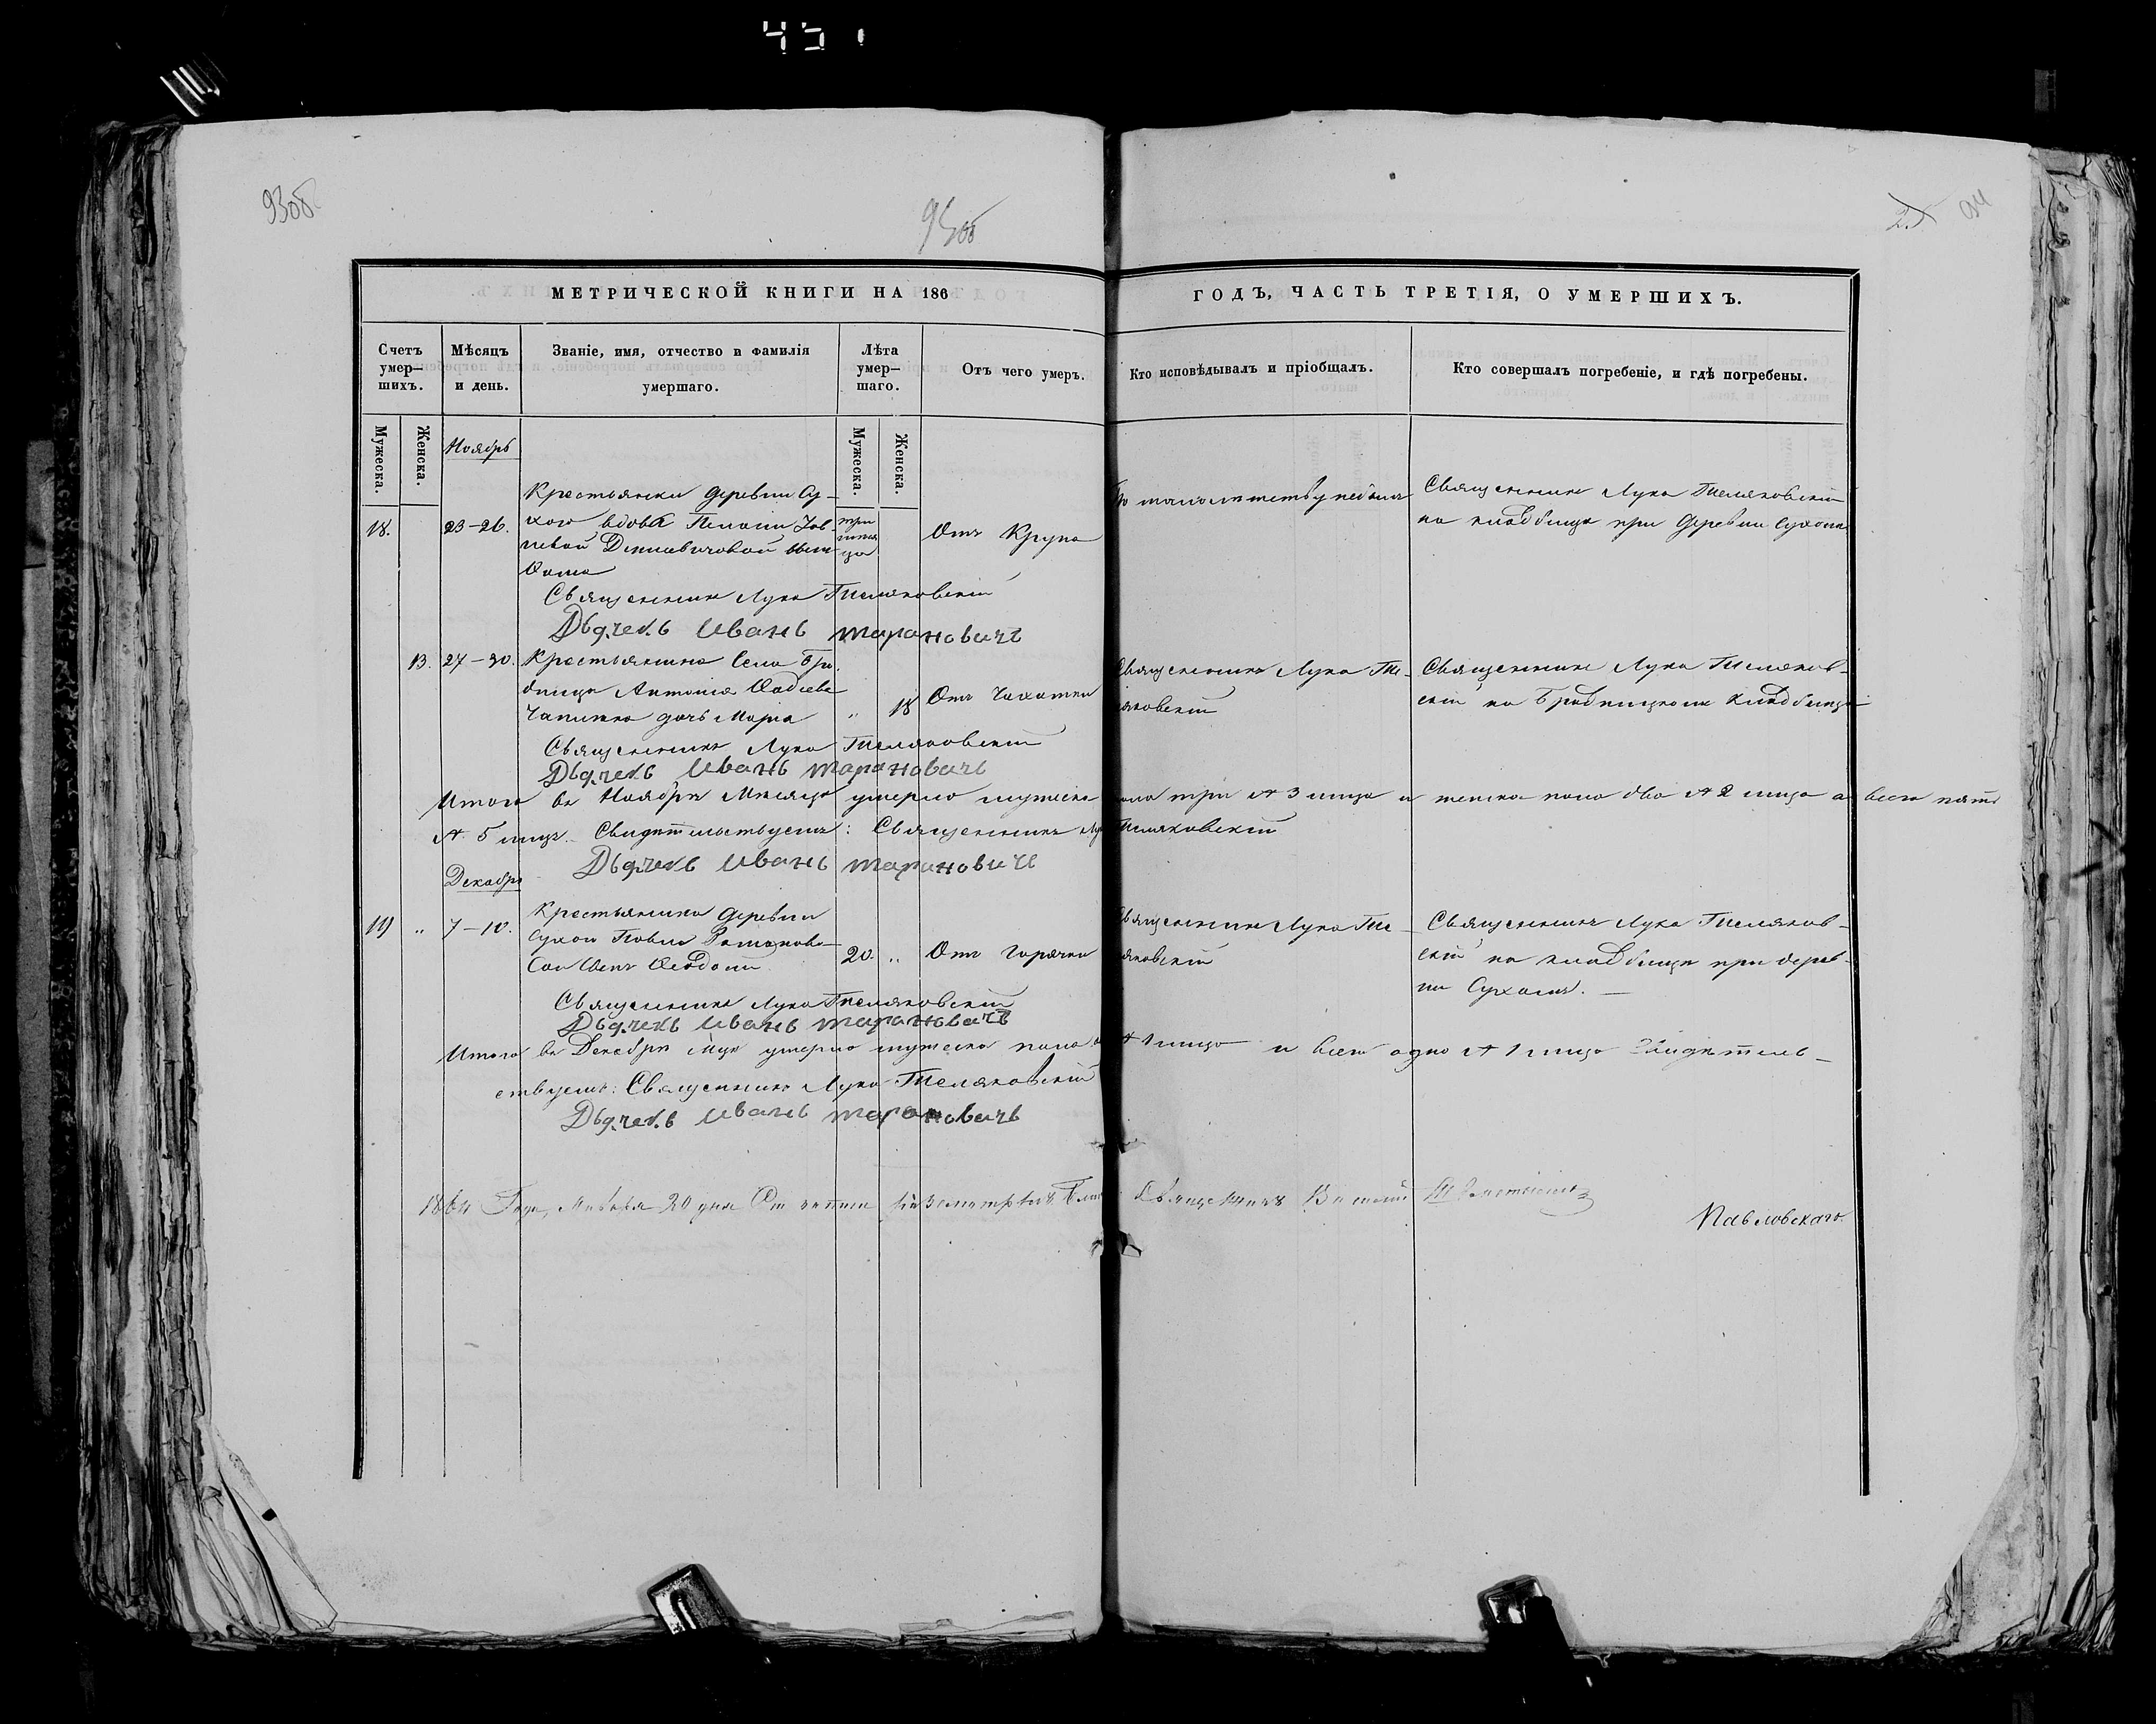 451
93об
93об
25 94
МЕТРИЧЕСКОЙ КНИГИ НА 186
ГОДЪ, ЧАСТЬ ТРЕТІЯ, О УМЕРШИХЪ.
Счетъ умер—шихъ.
Мѣсяцъ и день.
Званіе, имя, отчество и фамилія умершаго.
Лѣта умер—шаго.
Отъ чего умеръ.
Кто исповѣдывалъ и пріобщалъ.
Кто совершалъ погребеніе, и гдѣ погребены.
Мужеска.
Женска.
Мужеска.
Женска.
Ноябрь
18.
23–26.
Крестьянки деревни Су–
хого вдовы
Ѳома
три
Отъ Крупа
По малолѣтству
Священникъ Лука Теляковскій
на кладбищѣ при деревни Сухомъ
Священникъ Лука Теляковскій
Дьячекъ Иванъ Тарановичъ
13. 27–30.
Крестьянина Села Бро–
дницы Антонія
дочь Марія
„ 18
Отъ Чахотки
Священникъ Лука Те–
ляковскій
Священникъ Лука Теляков–
скій на Бродницкомъ Кладбищѣ
Священникъ Лука Теляковскій
Дьячекъ Иванъ Тарановичъ
Итого въ Ноябрѣ Мѣсяцѣ умерло мужеска пола три № 3 лица и женска пола два № 2 лица а всего пять
№ 5 лицъ. Свидѣтельствуемъ: Священникъ Лука Теляковскій
Дьячекъ Иванъ Тарановичъ
Декабрь
19 „ 7–10.
Крестьянина деревни
Сухого Павла Романова
Сынъ
20. „
Отъ Горячки
Священникъ Лука Те–
ляковскій
Священникъ Лука Теляков–
скій на кладбищѣ при дерев–
ни Сухомъ. —
Священникъ Лука Теляковскій
Дьячекъ Иванъ Тарановичъ
Итого въ Декабрѣ м–цѣ умерло мужеска пола № 1 лицо и всего одно № 1 лицо Свидѣтель–
ствуемъ: Священникъ Лука Теляковскій
Дьячекъ Иванъ Тарановичъ
1864 Года, Января 20 дня Священникъ
Павловскаго.